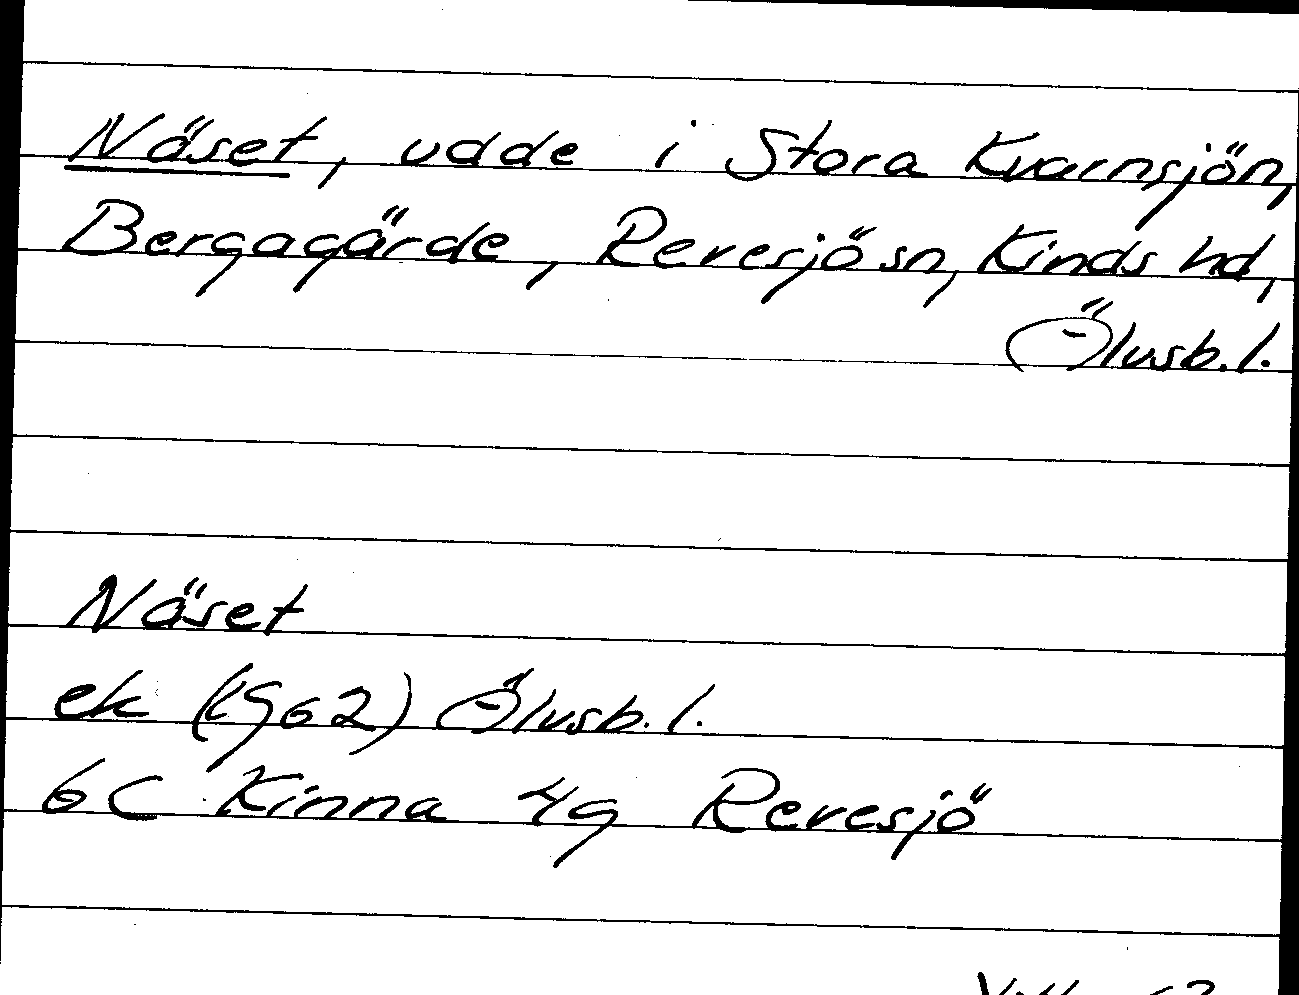 Näset, udde i Stora Kvarnsjön,
Bergagärde, Revesjö sn, Kinds hd,
Älvsb. l.
Näset
ek (1962) Älvsb. l.
6C Kinna 4g Revesjö